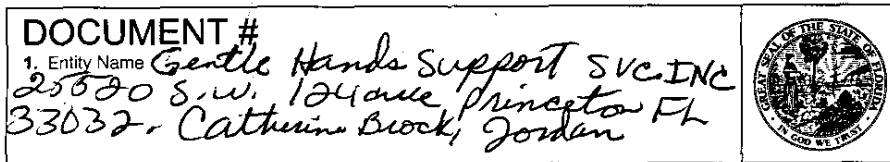 DOCUMENT #
1. Entity Name Gentle Hands Support SVC. INC
25520 S.W. 124 ave Princeton FL
33032. Catherine Brock, Jordan
GREAT SEAL OF THE STATE OF FLORIDA
IN GOD WE TRUST